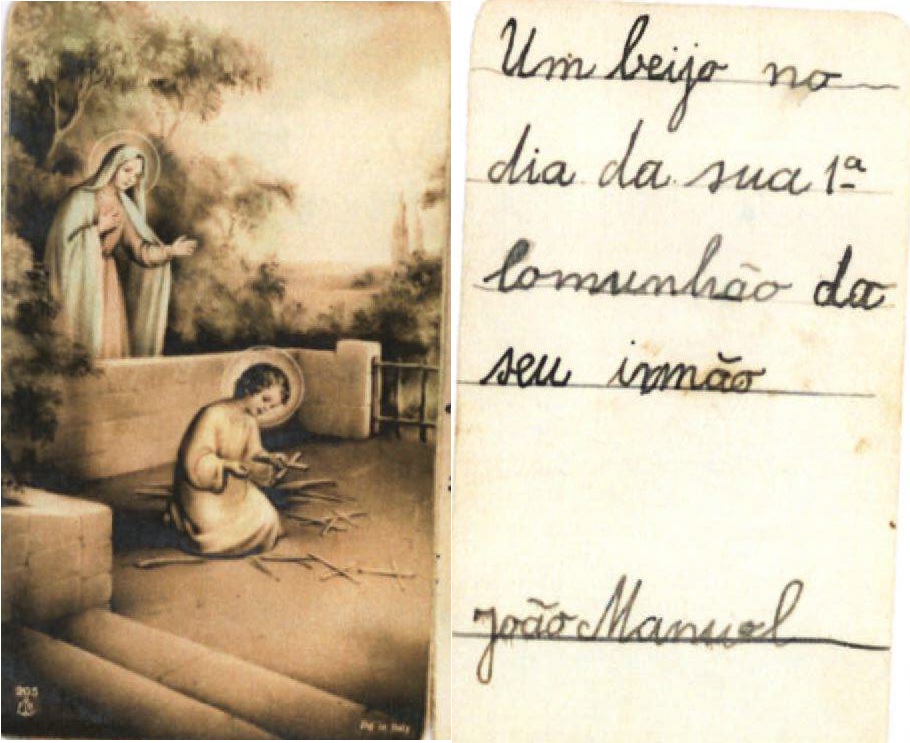 205
Ptg in Italy
Um beijo no
dia da sua 1ª
Comunhão da
seu irmão
João Manuel